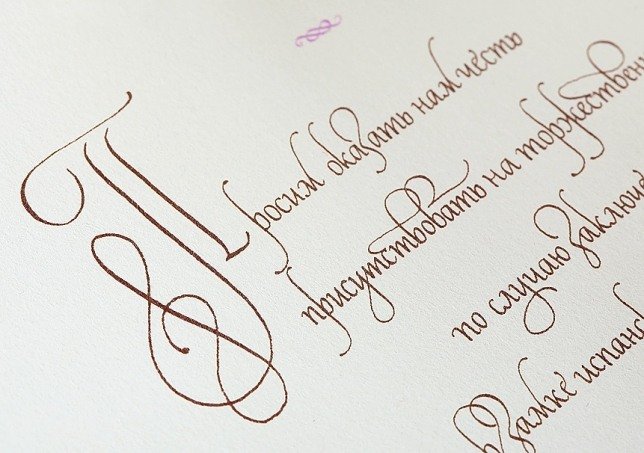 Просим оказать нам честь
присутствовать на торжествен
по случаю заключе
в замке испанс